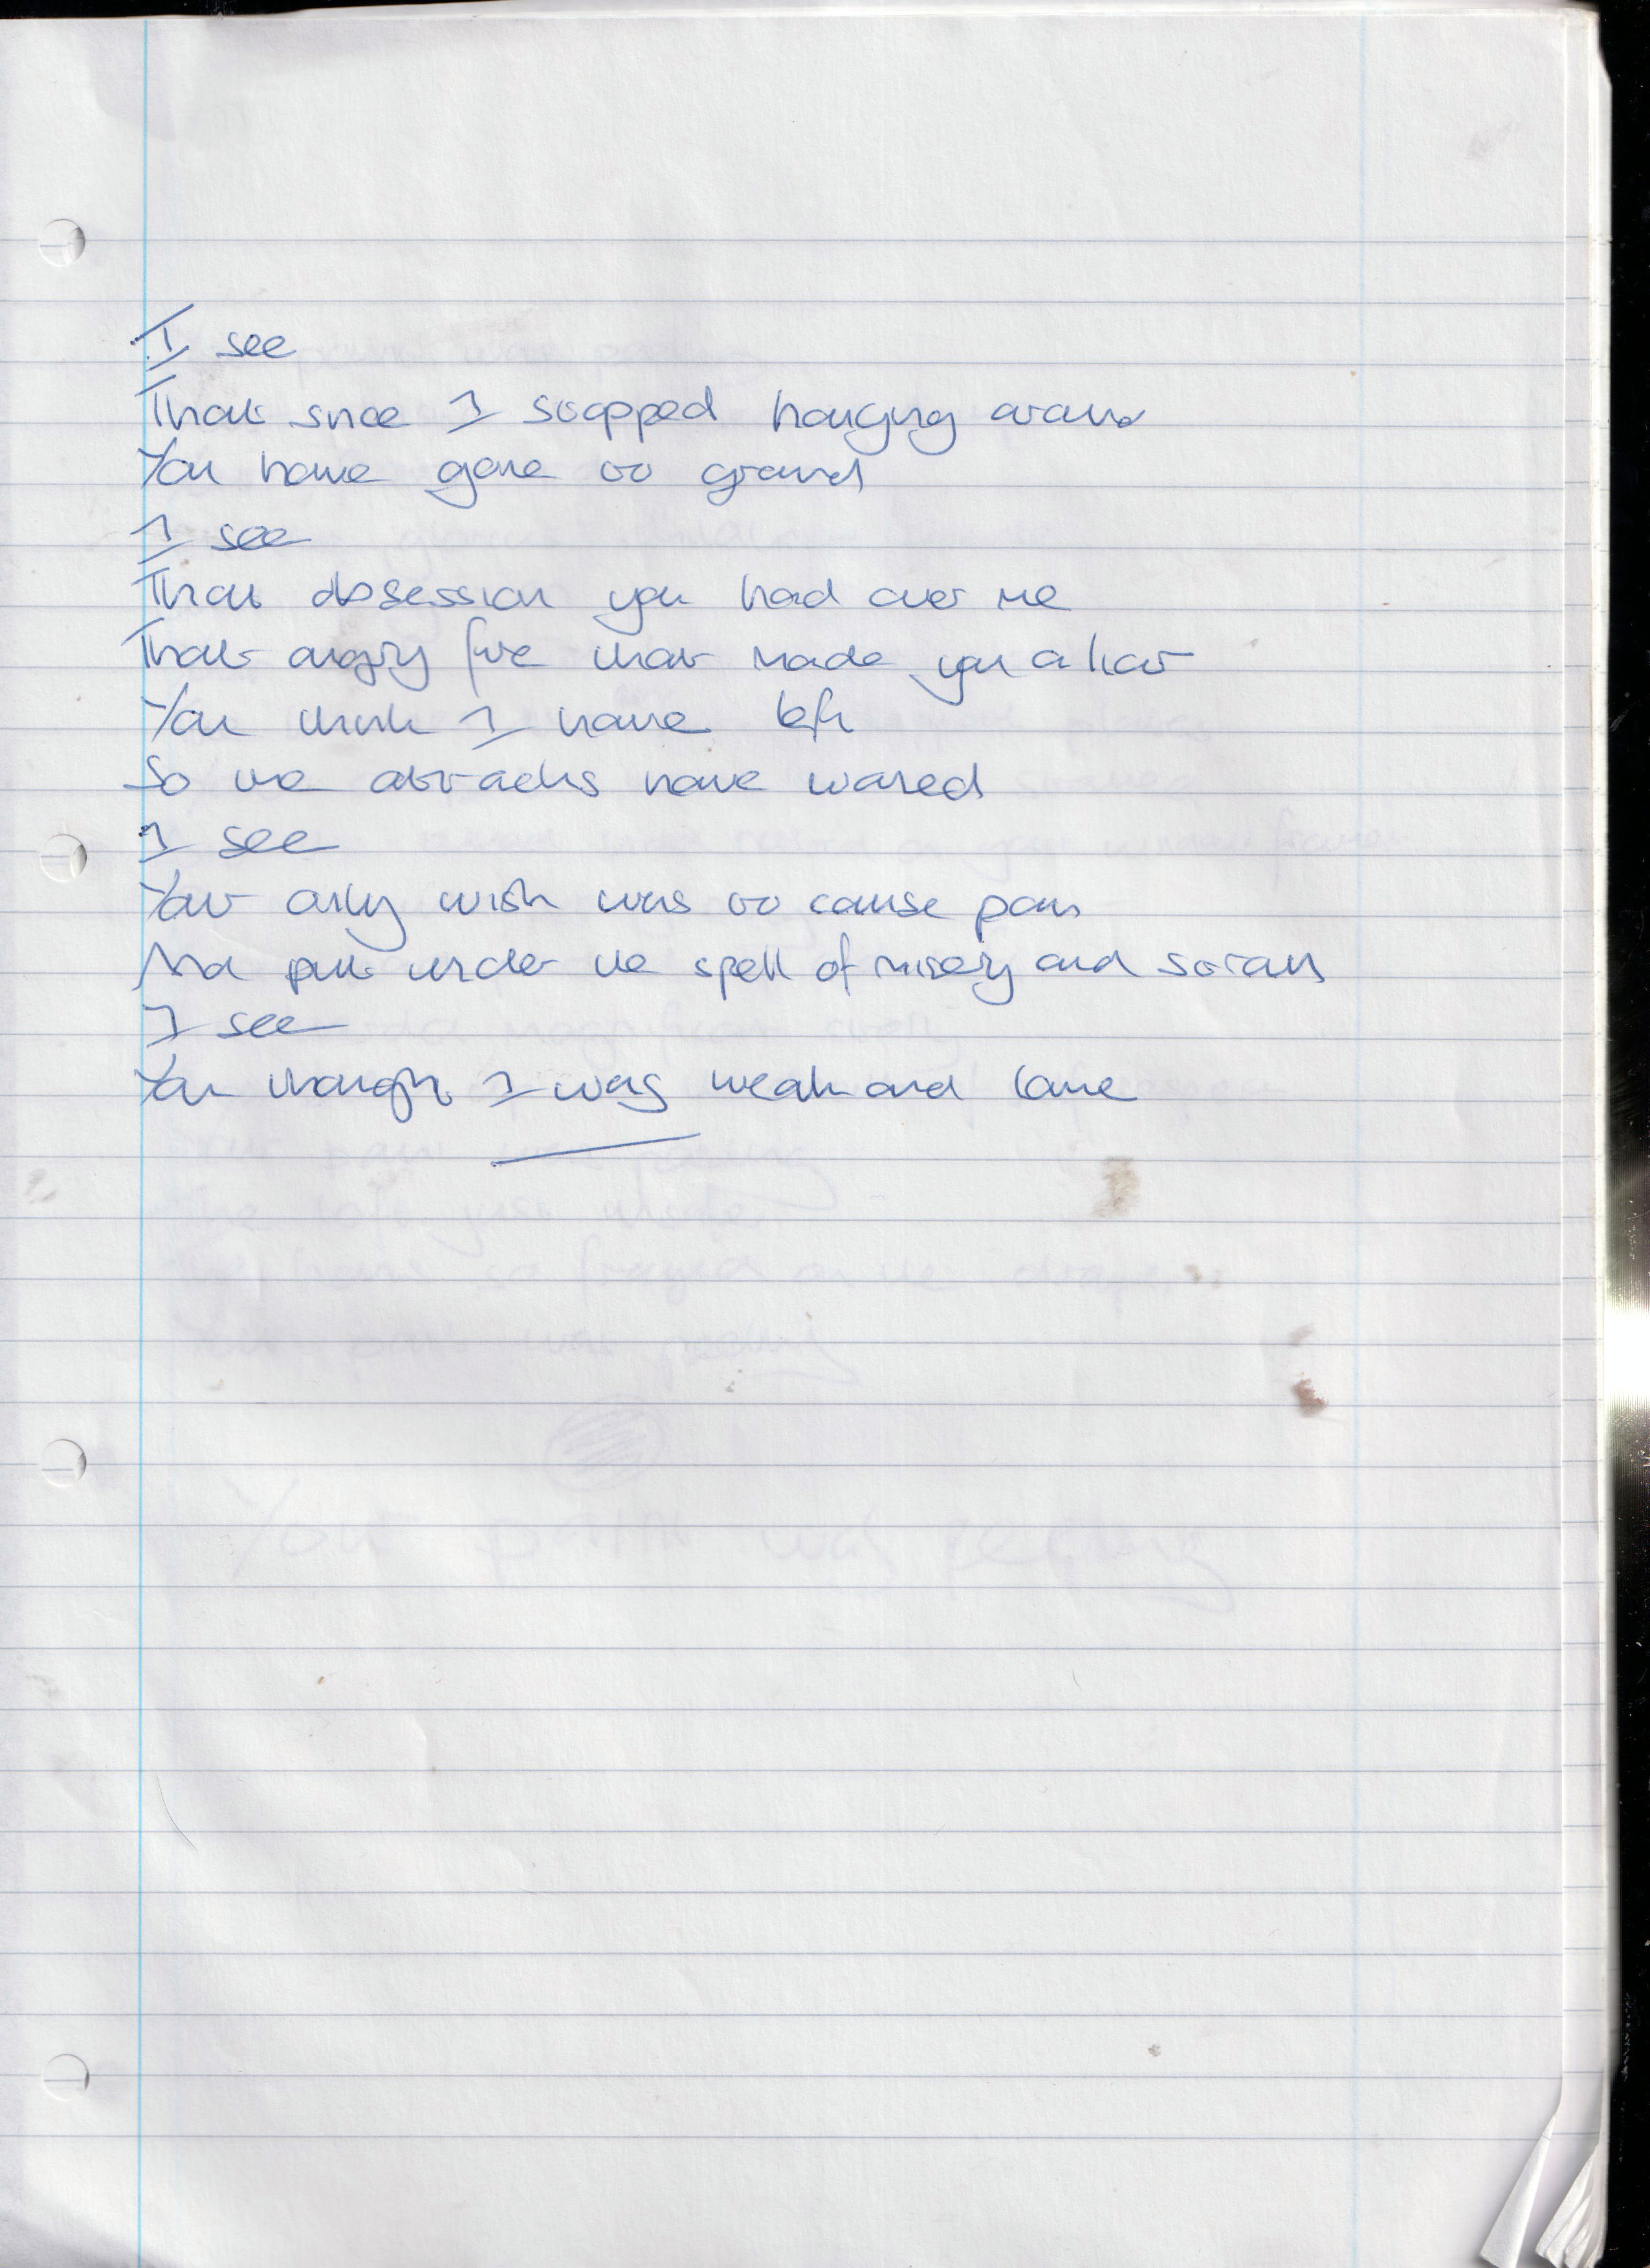 I see
That since I stopped hanging around
You have gone to ground
I see
That obsession you had over me
That angry fire that made you a liar
You think I have left
So the attacks have waned
I see
Your only wish was to cause pain
And put under the spell of misery and sorrow
I see
You thought I was weak and lame
Your pain was